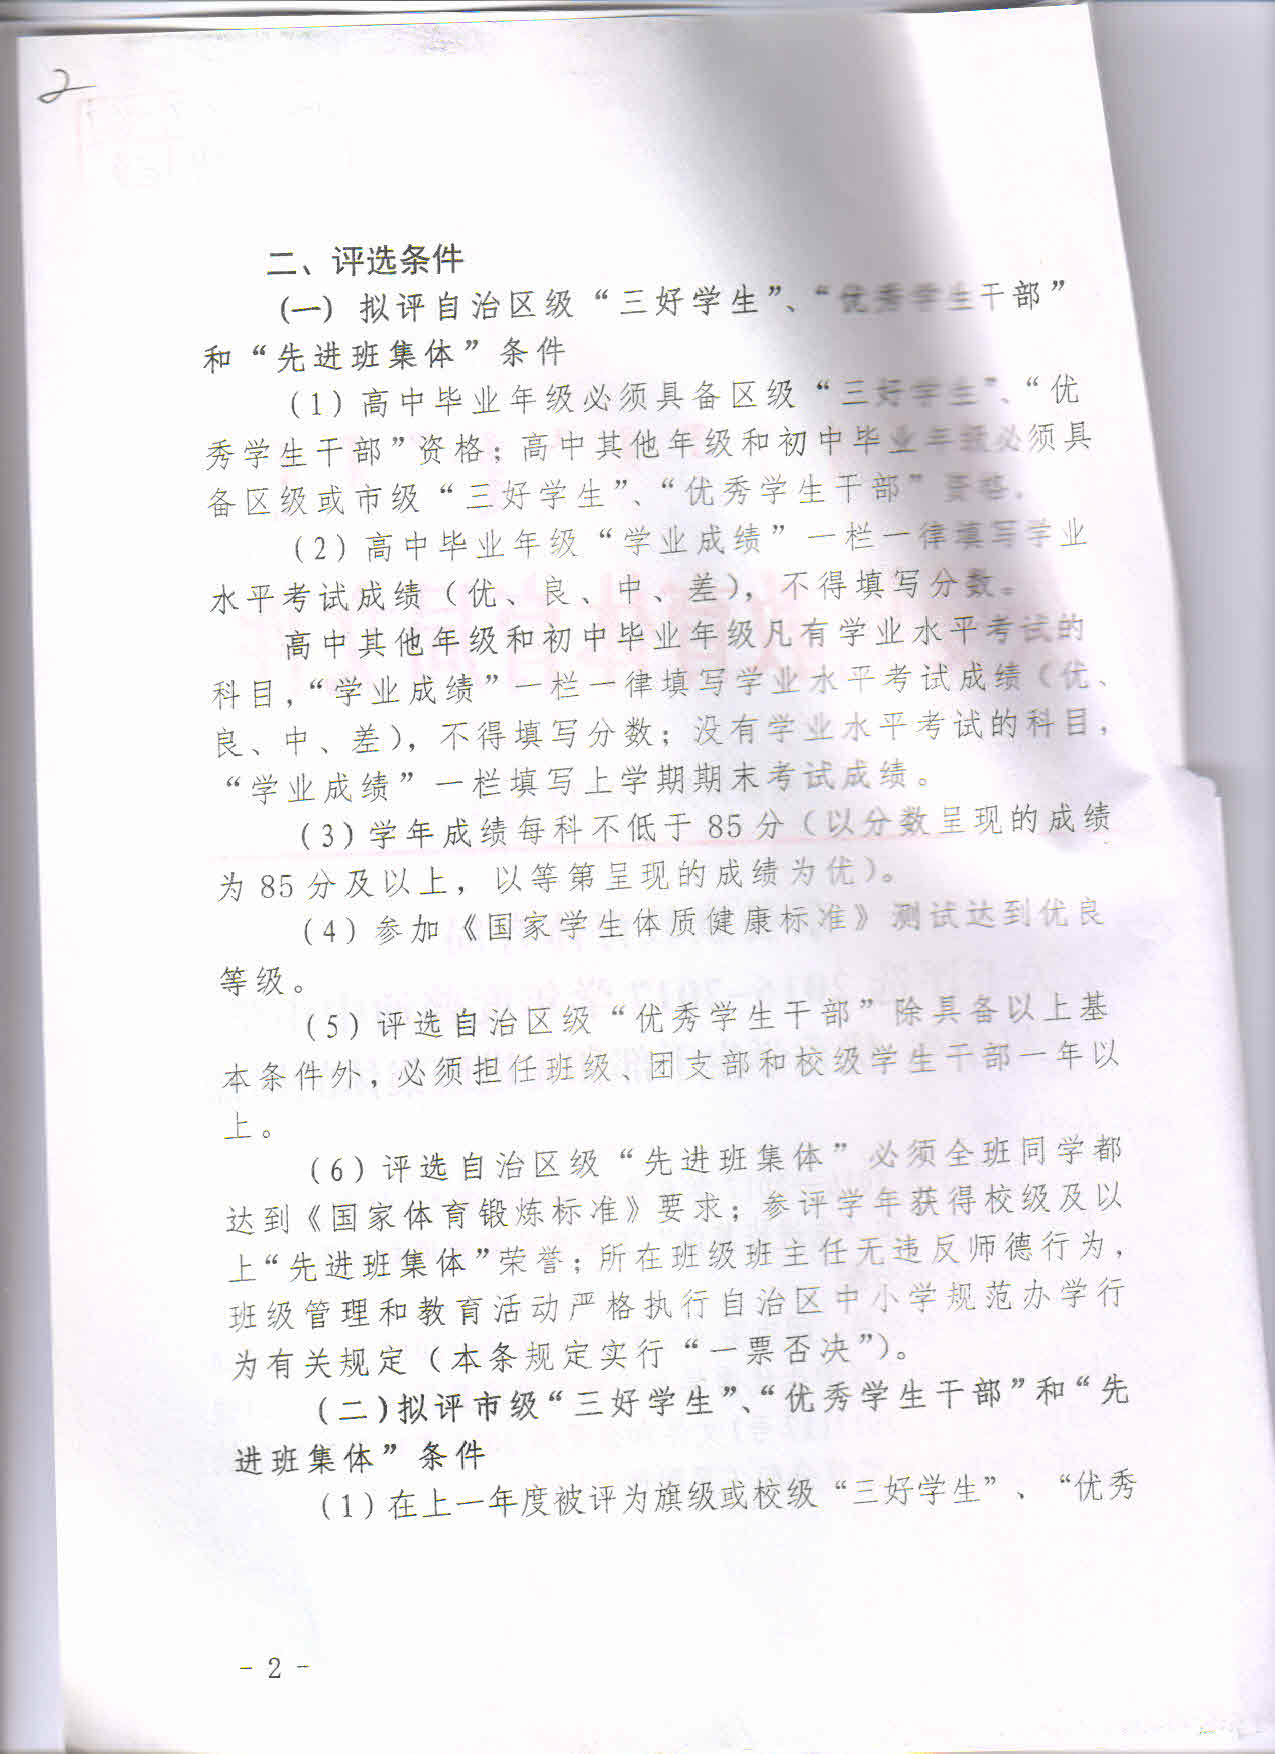 2
二、评选条件
(一) 拟评自治区级“三好学生”、“优秀学生干部”
和“先进班集体”条件
（1）高中毕业年级必须具备区级“三好学生”、“优
秀学生干部”资格；高中其他年级和初中毕业年级必须具
备区级或市级“三好学生”、“优秀学生干部”资格。
（2）高中毕业年级“学业成绩”一栏一律填写学业
水平考试成绩（优、良、中、差），不得填写分数。
高中其他年级和初中毕业年级凡有学业水平考试的
科目，“学业成绩”一栏一律填写学业水平考试成绩（优、
良、中、差），不得填写分数；没有学业水平考试的科目，
“学业成绩”一栏填写上学期期末考试成绩。
（3）学年成绩每科不低于 85 分（以分数呈现的成绩
为 85 分及以上，以等第呈现的成绩为优）。
（4）参加《国家学生体质健康标准》测试达到优良
等级。
（5）评选自治区级“优秀学生干部”除具备以上基
本条件外，必须担任班级、团支部和校级学生干部一年以
上。
（6）评选自治区级“先进班集体”必须全班同学都
达到《国家体育锻炼标准》要求；参评学年获得校级及以
上“先进班集体”荣誉；所在班级班主任无违反师德行为，
班级管理和教育活动严格执行自治区中小学规范办学行
为有关规定（本条规定实行“一票否决”）。
（二)拟评市级“三好学生”、“优秀学生干部”和“先
进班集体”条件
（1）在上一年度被评为旗级或校级“三好学生”、“优秀
- 2 -